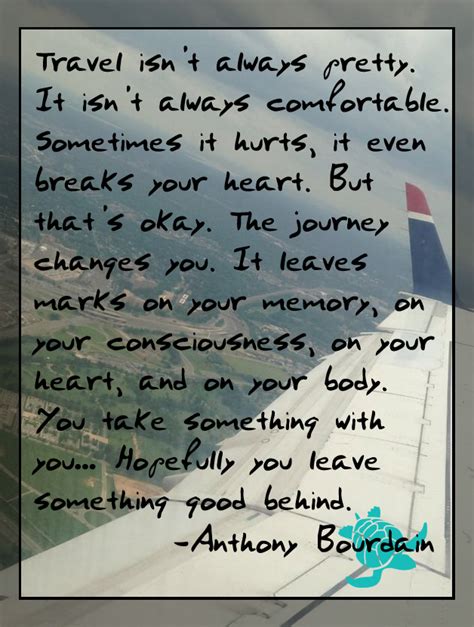 Travel isn't always pretty.
It isn't always comfortable.
Sometimes it hurts, it even
breaks your heart. But
that's okay. The journey
changes you. It leaves
marks on your memory, on
your consciousness, on your
heart, and on your body.
You take something with
you... Hopefully you leave
something good behind.
-Anthony Bourdain